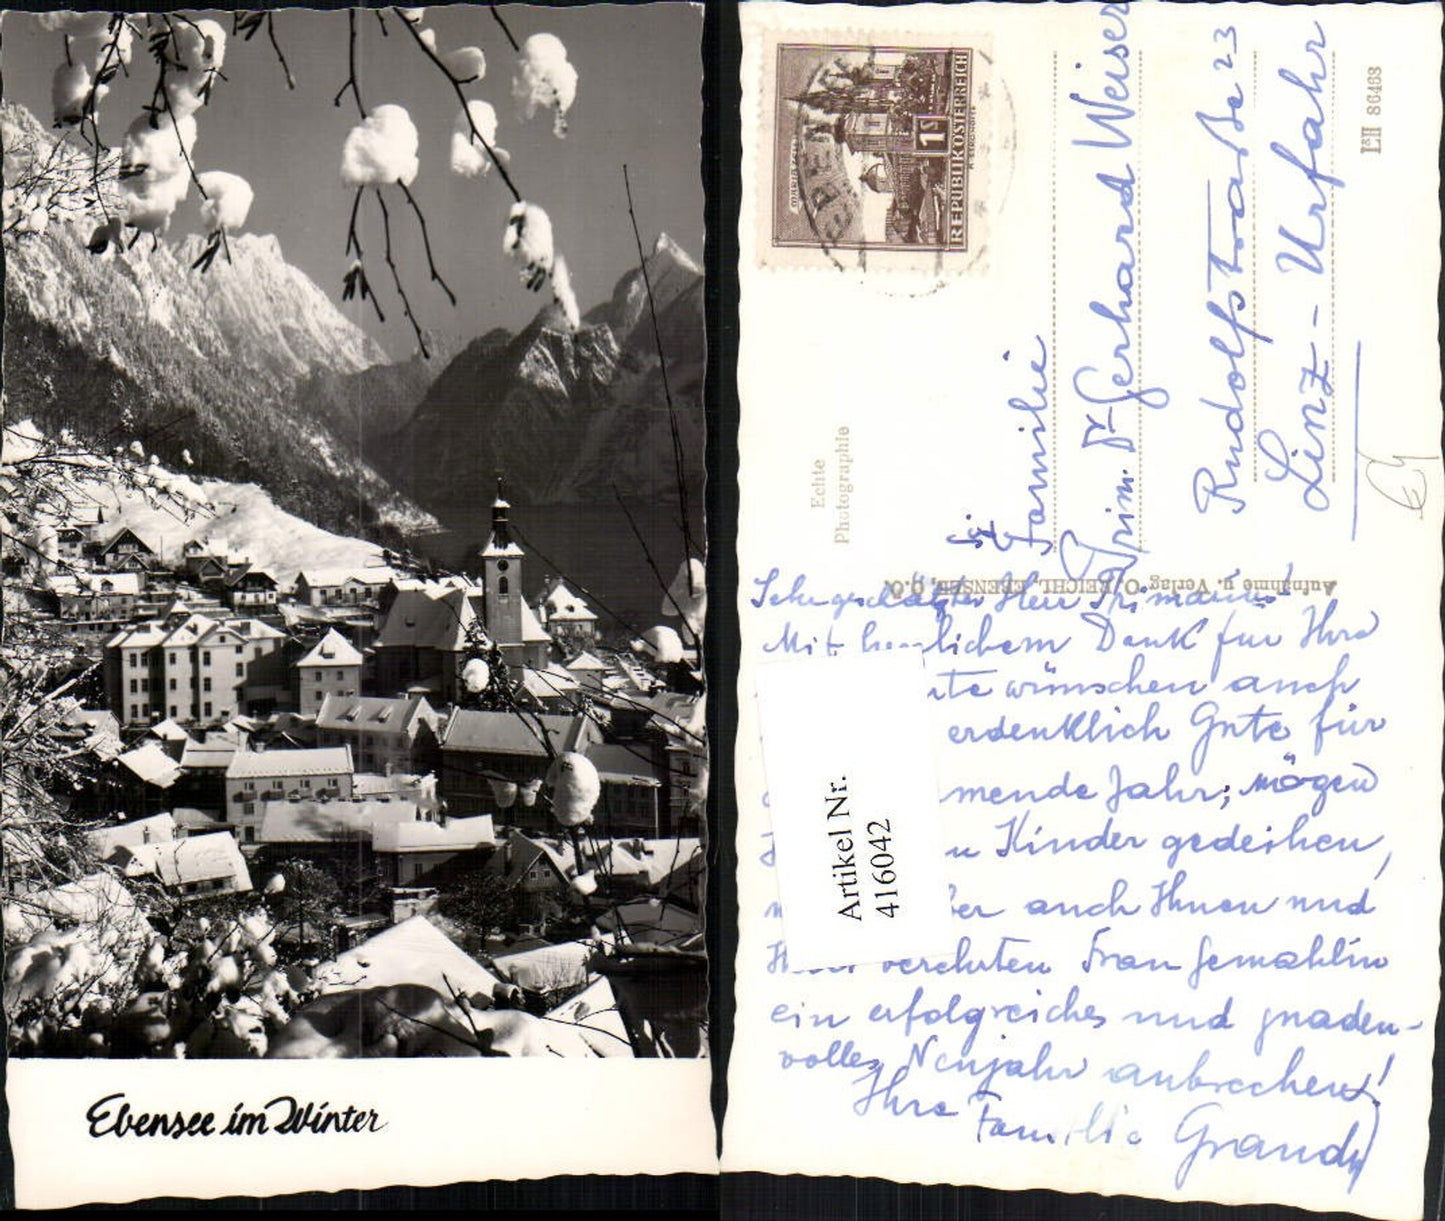 Ebensee im Winter
REPUBLIK ÖSTERREICH
1S
Echte
Photographie
Familie
Prim. Dr Gerhard Weiser
Rudolfstraße 23
Linz - Urfahr
L&H 86463
Aufnahme u. Verlag O. REICHL, EBENSEE, O.Ö.
Sehr geehrter Herr Primarius!
Mit herzlichem Dank für Ihre
wünschen auch
erdenklich Gute für
mende Jahr; mögen
Kinder gedeihen,
auch Ihnen und
verehrten Frau Gemahlin
ein erfolgreiches und gnaden-
volles Neujahr anbrechen!
Ihre
Familie Grandy
Artikel Nr.
416042